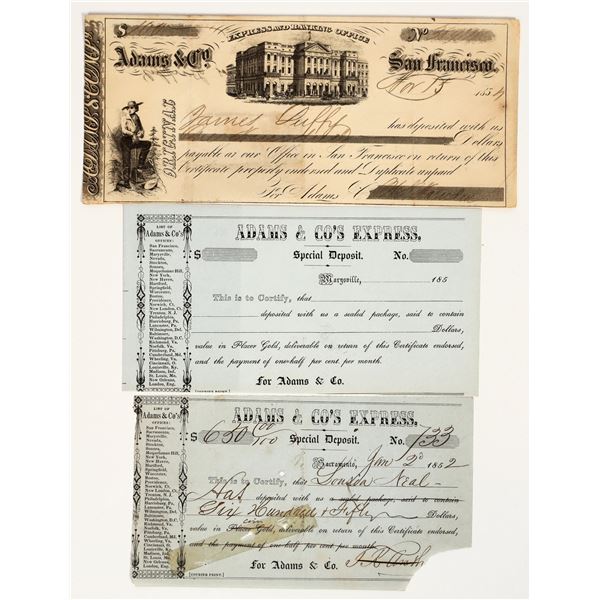 $
EXPRESS AND BANKING OFFICE
No
Adams & Co.
San Francisco,
Nov 15 1854
ORIGINAL
James Duffy
has deposited with us
Dollars
payable at our Office in San Francisco on return of this
Certificate properly endorsed and Duplicate unpaid
For Adams & Co
LIST OF
Adams & Co's
OFFICES:
San Francisco,
Sacramento,
Marysville,
Nevada,
Stockton,
Sonora,
Moquelumne Hill,
New York,
New Haven,
Hartford,
Springfield,
Worcester,
Boston,
Providence,
Norwich, Ct.
New London, Ct.
Trenton, N. J.
Philadelphia,
Harrisburg, Pa.
Lancaster, Pa.
Wilmington, Del.
Baltimore,
Washington, D.C.
Richmond, Va.
Norfolk, Va.
Pittsburg, Pa.
Cumberland, Md.
Wheeling, Va.
Cincinnati, O.
Louisville, Ky.
Madison, Ind.
St. Louis, Mo.
New Orleans,
London, Eng.
ADAMS & CO'S EXPRESS.
$ Special Deposit. No.
Marysville, 185
This is to Certify, that
deposited with us a sealed package, said to contain
Dollars,
value in Placer Gold, deliverable on return of this Certificate endorsed,
and the payment of one-half per cent. per month.
For Adams & Co.
LIST OF
Adams & Co's
OFFICES:
San Francisco,
Sacramento,
Marysville,
Nevada,
Stockton,
Sonora,
Moquelumne Hill,
New York,
New Haven,
Hartford,
Springfield,
Worcester,
Boston,
Providence,
Norwich, Ct.
New London, Ct.
Trenton, N. J.
Philadelphia,
Harrisburg, Pa.
Lancaster, Pa.
Wilmington, Del.
Baltimore,
Washington, D.C.
Richmond, Va.
Norfolk, Va.
Pittsburg, Pa.
Cumberland, Md.
Wheeling, Va.
Cincinnati, O.
Louisville, Ky.
Madison, Ind.
St. Louis, Mo.
New Orleans,
London, Eng.
ADAMS & CO'S EXPRESS.
$ 650 00/100 Special Deposit. No. 133
Sacramento, Jan 2d 1852
This is to Certify, that Neal
Has deposited with us a sealed package, said to contain
Six Hundred & Fifty Dollars,
value in Placer Coin Gold, deliverable on return of this Certificate endorsed,
and the payment of one-half per cent per month.
For Adams & Co.
[COURIER PRINT.]